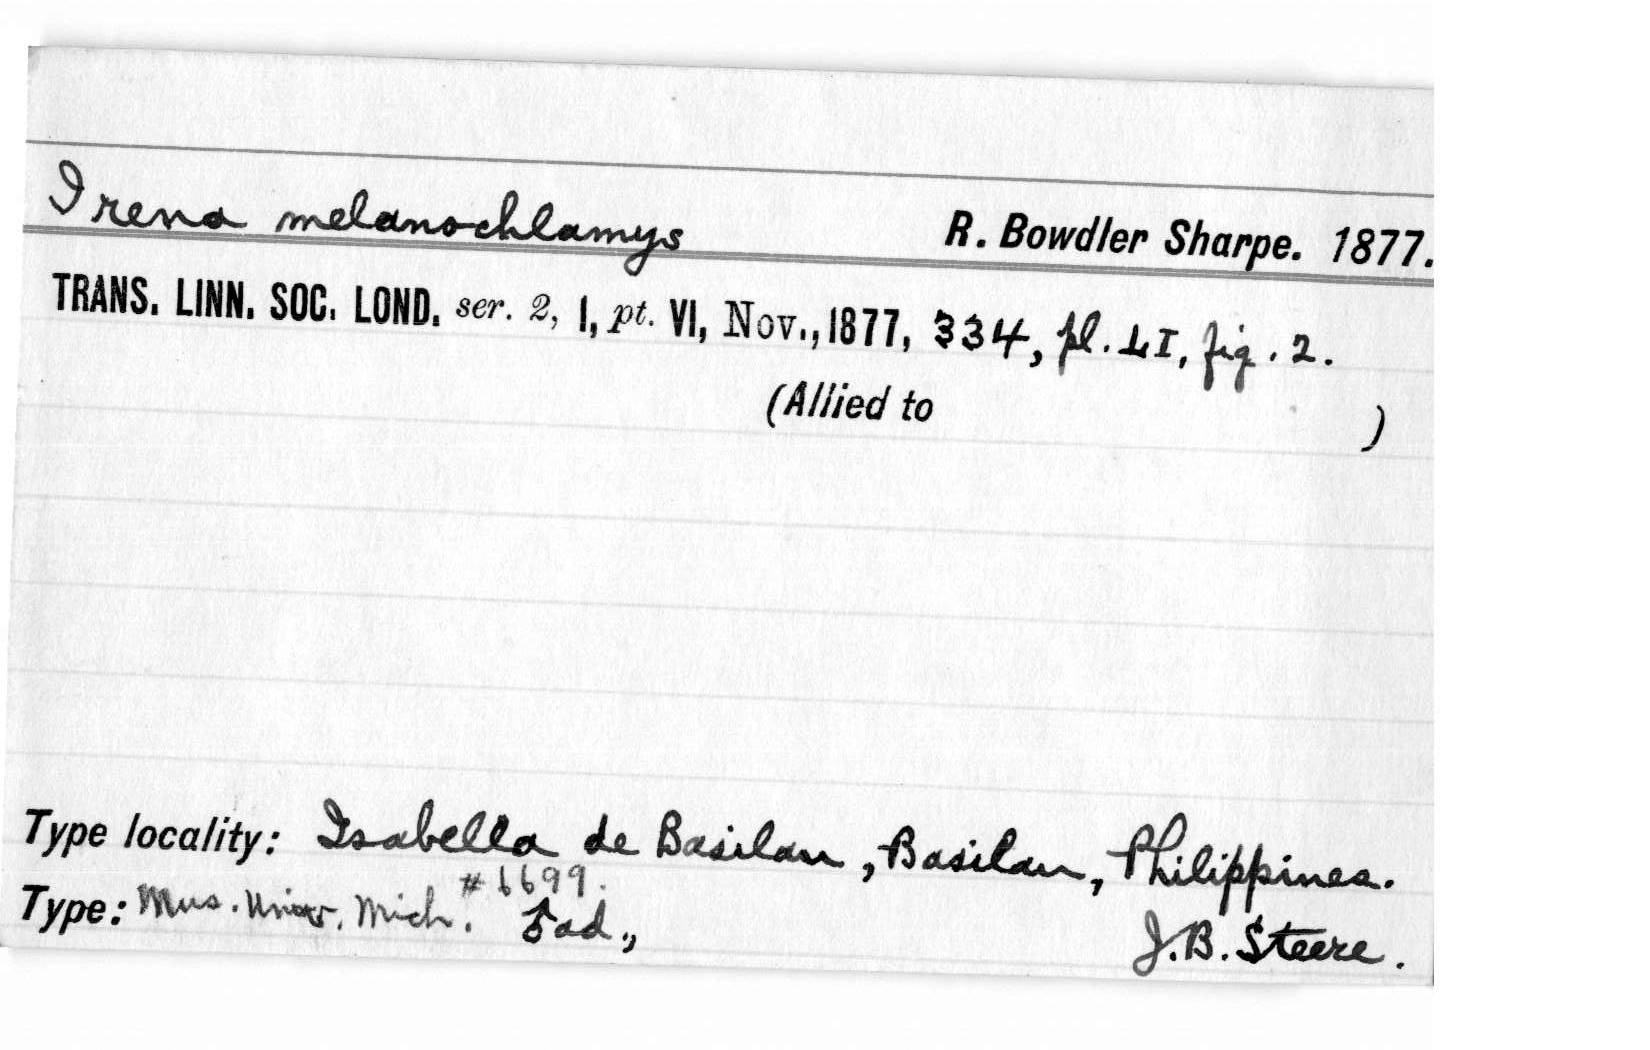 Irena melanochlamys R. Bowdler Sharpe. 1877.
TRANS. LINN. SOC. LOND. ser. 2, I, pt. VI, Nov., 1877, 334, pl. LI, fig. 2.
(Allied to )
Type locality: Isabella de Basilan, Basilan, Philippines.
#6699.
Type: Mus. Univ. Mich. ♂ ad., J.B. Steere.